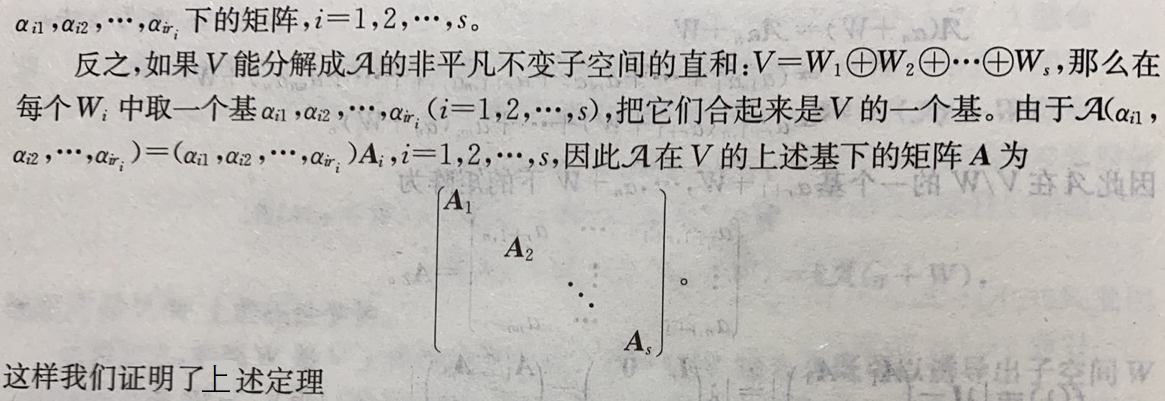 α_{i1},α_{i2},⋯,α_{ir_i}下的矩阵,i=1,2,⋯,s。
反之,如果V能分解成𝒜的非平凡不变子空间的直和:V=W_1⊕W_2⊕⋯⊕W_s,那么在
每个W_i中取一个基α_{i1},α_{i2},⋯,α_{ir_i}(i=1,2,⋯,s),把它们合起来是V的一个基。由于𝒜(α_{i1},
α_{i2},⋯,α_{ir_i})=(α_{i1},α_{i2},⋯,α_{ir_i})A_i,i=1,2,⋯,s,因此𝒜在V的上述基下的矩阵A为
A_1
A_2
⋱ 。
A_s
这样我们证明了上述定理